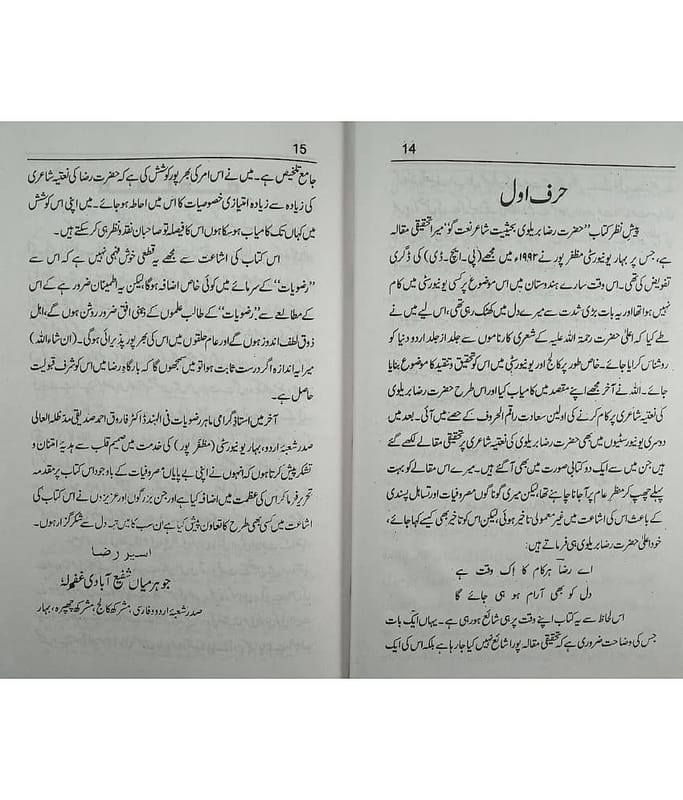 14
حرف اول
پیش نظر کتاب "حضرت رضا بریلوی بحیثیت شاعر نعت گو" میرا تحقیقی مقالہ
ہے، جس پر بہار یونیورسٹی مظفر پور نے ۱۹۹۲ء میں مجھے (پی۔ ایچ۔ ڈی) کی ڈگری
تفویض کی تھی۔ اس وقت سارے ہندوستان میں اس موضوع پر کسی یونیورسٹی میں کام
نہیں ہوا تھا اور یہ بات بڑی شدت سے میرے دل میں کھٹک رہی تھی، اس لیے میں نے
طے کیا کہ اعلیٰ حضرت رحمۃ اللہ علیہ کے شعری کارناموں سے جلد از جلد اردو دنیا کو
روشناس کرایا جائے۔ خاص طور پر کالج اور یونیورسٹی میں اس کو تحقیق و تنقید کا موضوع بنایا
جائے۔ اللہ نے آخر مجھے اپنے مقصد میں کامیاب کیا اور اس طرح حضرت رضا بریلوی
کی نعتیہ شاعری پر کام کرنے کی اولین سعادت راقم الحروف کے حصے میں آئی۔ بعد میں
دوسری یونیورسٹیوں میں بھی حضرت رضا بریلوی کی نعتیہ شاعری پر تحقیقی مقالے لکھے گئے
ہیں جن میں سے ایک دو کتابی صورت میں بھی آگئے ہیں۔ میرے اس مقالے کو بہت
پہلے چھپ کر منظر عام پر آجانا چاہئے تھا، لیکن میری گوناگوں مصروفیات اور تساہل پسندی
کے باعث اس کی اشاعت میں غیر معمولی تاخیر ہوئی، لیکن اس کو تاخیر بھی کیسے کہا جائے،
خود اعلیٰ حضرت رضا بریلوی ہی فرماتے ہیں:
اے رضا ہر کام کا اِک وقت ہے
دل کو بھی آرام ہو ہی جائے گا
اس لحاظ سے یہ کتاب اپنے وقت پر ہی شائع ہو رہی ہے۔ یہاں ایک بات
جس کی وضاحت ضروری ہے کہ تحقیقی مقالہ پورا شائع نہیں کیا جا رہا ہے بلکہ اس کی ایک
15
جامع تلخیص ہے۔ میں نے اس امر کی بھر پور کوشش کی ہے کہ حضرت رضا کی نعتیہ شاعری
کی زیادہ سے زیادہ امتیازی خصوصیات کا اس میں احاطہ ہو جائے۔ میں اپنی اس کوشش
میں کہاں تک کامیاب ہو سکا ہوں اس کا فیصلہ تو صاحبان نقد و نظر ہی کر سکتے ہیں۔
اس کتاب کی اشاعت سے مجھے یہ قطعی خوش فہمی نہیں ہے کہ اس سے
"رضویات" کے سرمائے میں کوئی خاص اضافہ ہوگا، لیکن یہ اطمینان ضرور ہے کے اس
کے مطالعے سے "رضویات" کے طالب علموں کے ذہنی افق ضرور روشن ہوں گے، اہل
ذوق لطف اندوز ہوں گے اور عام حلقوں میں اس کی بھر پور پذیرائی ہوگی۔ (ان شاء اللہ)
میرا یہ اندازہ اگر درست ثابت ہوا تو میں سمجھوں گا کہ بارگاہِ رضا میں اس کو شرف قبولیت
حاصل ہے۔
آخر میں استاذ گرامی ماہر رضویات فی الہند ڈاکٹر فاروق احمد صدیقی مدظلہ العالی
صدر شعبۂ اردو، بہار یونیورسٹی (مظفر پور) کی خدمت میں صمیم قلب سے ہدیۂ امتنان و
تشکر پیش کرتا ہوں کہ انہوں نے اپنی بے پایاں مصروفیات کے باوجود اس کتاب پر مقدمہ
تحریر فرما کر اس کی عظمت میں اضافہ کیا ہے اور جن بزرگوں اور عزیزوں نے اس کتاب کی
اشاعت میں کسی بھی طرح کا تعاون پیش کیا ہے ان سب کا میں تہہ دل سے شکر گزار ہوں۔
اسیر رضا
جوہر میاں شفیع آبادی غفرلہ
صدر شعبۂ اردو و فارسی، مشرکھ کالج، مشرکھ چھپرہ، بہار